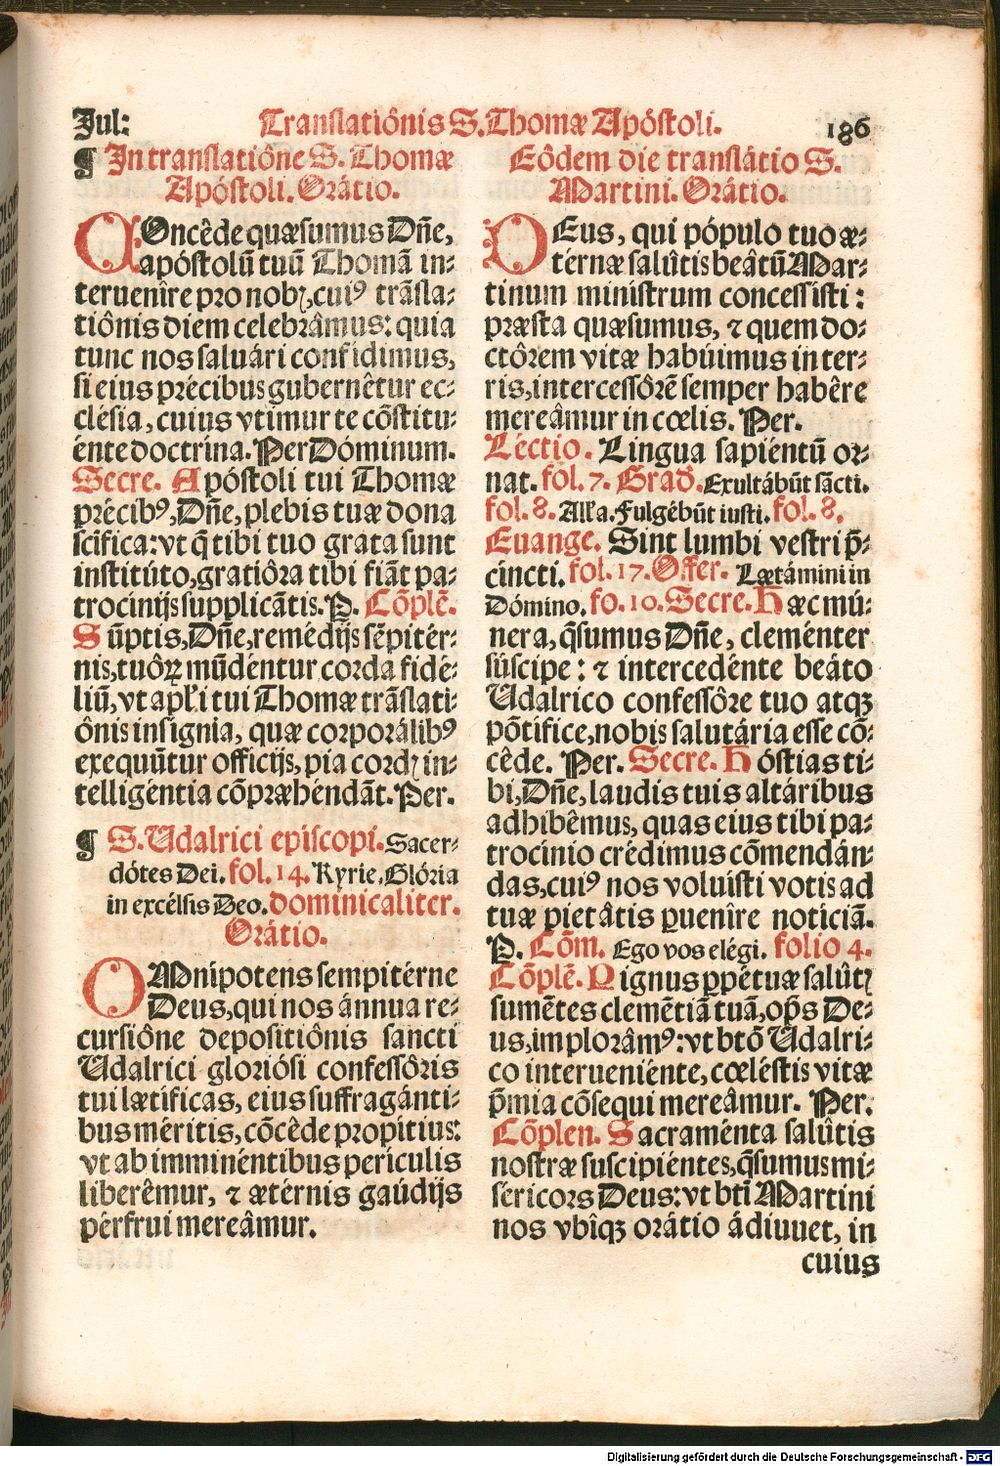 Jul:
Translatiônis S. Thomæ Apóstoli.
186
¶ In translatiône S. Thomæ
Apóstoli. Orâtio.
COncêde quæsumus Dñe,
apóstolũ tuũ Thomã in⸗
teruenîre pro nobꝭ, cuiꝰ trãsla⸗
tiônis diem celebrâmus: quia
tunc nos saluári confidimus,
si eius précibus gubernêtur ec⸗
clésia, cuius vtimur te cõstitu⸗
énte doctrina. Per Dóminum.
Secre. Apóstoli tui Thomæ
précibꝰ, Dñe, plebis tuæ dona
scífica: vt q̃ tibi tuo grata sunt
institúto, gratiôra tibi fiãt pa⸗
trocinijs supplicãtis. P. Cõplẽ.
Sũptis, Dñe, remédijs sẽpitér⸗
nis, tuôrꝝ mũdentur corda fidé⸗
liũ, vt apl̃i tui Thomæ trãslati⸗
ônis insignia, quæ corporálibꝰ
exequũtur officijs, pia cordꝭ in⸗
telligéntia cõpræhendãt. Per.
¶ S. Udalrici epíscopi. Sacer⸗
dótes Dei. fol. 14. Kyrie. Glória
in excélsis Deo. dominicaliter.
Orátio.
OMnípotens sempitérne
Deus, qui nos ánnua re⸗
cursiône depositiônis sancti
Udalrici gloriósi confessôris
tui lætíficas, eius suffragánti⸗
bus méritis, cõcêde propítius:
vt ab imminéntibus perículis
liberêmur, ⁊ ætérnis gaúdijs
pérfrui mereâmur.
Eôdem die translátio S.
Martini. Orâtio.
DEus, qui pópulo tuo æ⸗
térnæ salûtis beâtũ Mar⸗
tinum ministrum concessísti:
præsta quæsumus, ⁊ quem do⸗
ctôrem vitæ habúimus in ter⸗
ris, intercessôrẽ semper habêre
mereâmur in cœlis. Per.
Léctio. Lingua sapiéntũ or⸗
nat. fol. 7. Grad. Exultábũt sãcti.
fol. 8. All'a. Fulgébũt iusti. fol. 8.
Euange. Sint lumbi vestri p̃⸗
cincti. fol. 17. Offer. Lætámini in
Dómino. fo. 10. Secre. Hæc mú⸗
nera, q̃sumus Dñe, cleménter
súscipe: ⁊ intercedénte beáto
Udalrico confessôre tuo atqꝫ
põtífice, nobis salutária esse cõ⸗
cêde. Per. Secre. Hóstias ti⸗
bi, Dñe, laudis tuis altáribus
adhibêmus, quas eius tibi pa⸗
trocínio crédimus cõmendán⸗
das, cuiꝰ nos voluísti votis ad
tuæ pietâtis ꝑuenîre notíciã.
P. Cõm. Ego vos elégi. folio 4.
Cõplẽ. Pignus ꝑpétuæ salûtꝭ
sumẽtes clemẽtiã tuã, op̃s De⸗
us, implorâmꝰ: vt btõ Udalri⸗
co interueniénte, cœléstis vitæ
p̃mia cõsequi mereâmur. Per.
Cõplen. Sacraménta salûtis
nostræ suscipiéntes, q̃sumus mi⸗
séricors Deus: vt bti Martini
nos vbîqꝫ orâtio ádiuuet, in
cuius
Digitalisierung gefördert durch die Deutsche Forschungsgemeinschaft - DFG